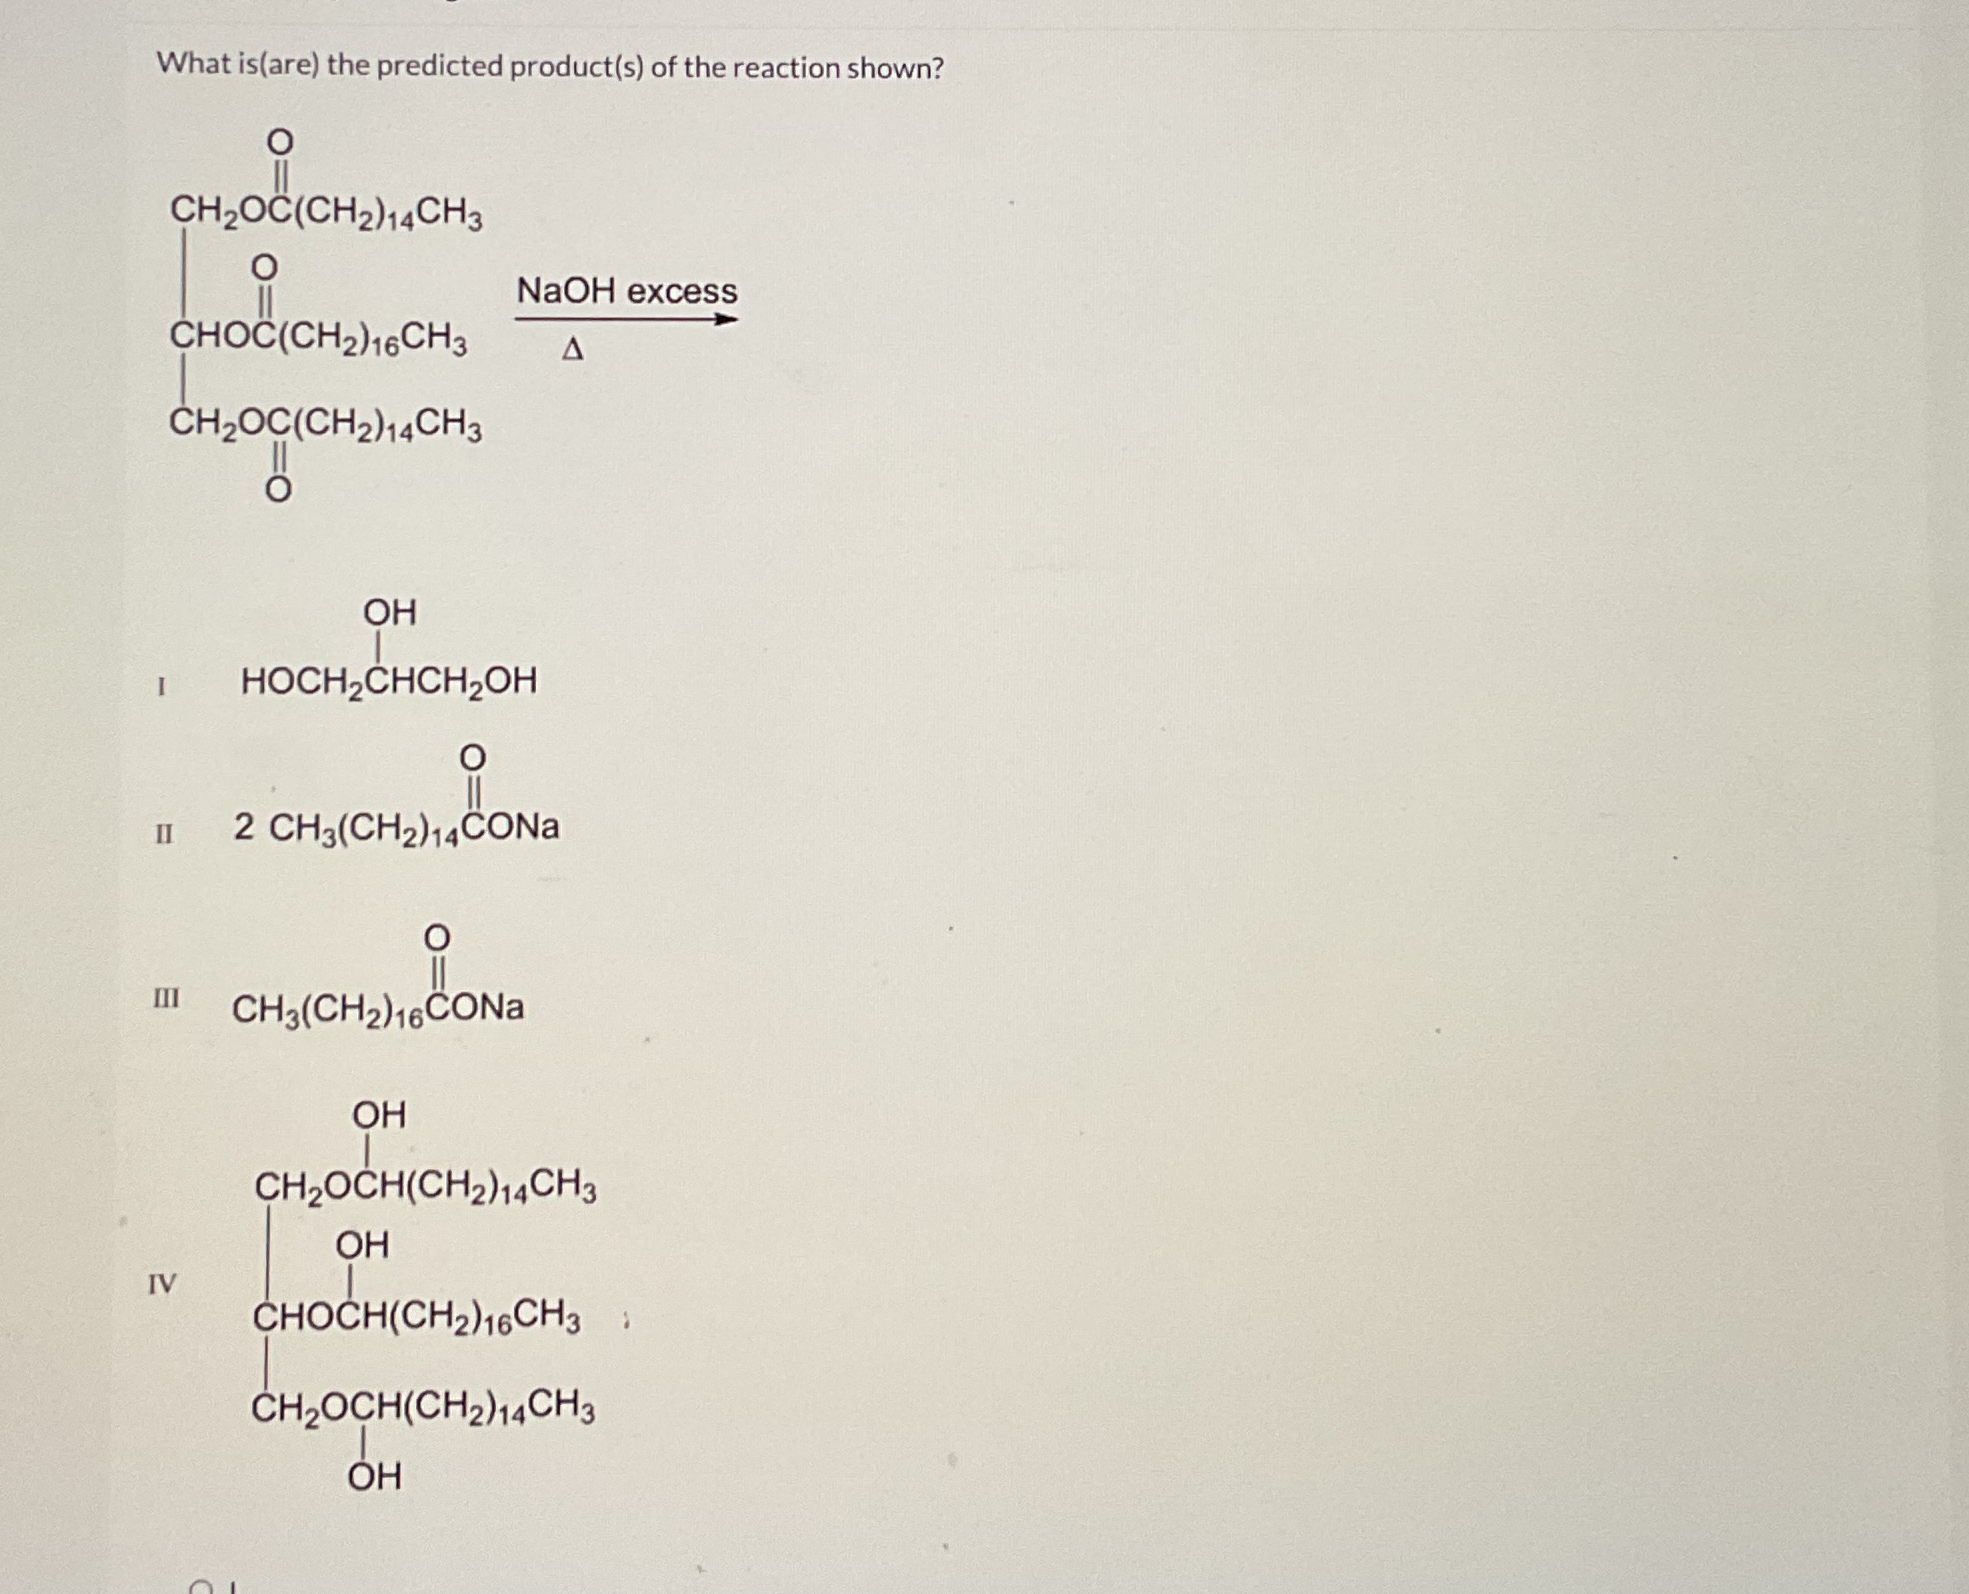 What is(are) the predicted product(s) of the reaction shown?
O
CH₂OC(CH₂)₁₄CH₃
O
CHOC(CH₂)₁₆CH₃
NaOH excess
Δ
CH₂OC(CH₂)₁₄CH₃
O
OH
I HOCH₂CHCH₂OH
O
II 2 CH₃(CH₂)₁₄CONa
O
III CH₃(CH₂)₁₆CONa
OH
CH₂OCH(CH₂)₁₄CH₃
OH
IV
CHOCH(CH₂)₁₆CH₃ ;
CH₂OCH(CH₂)₁₄CH₃
OH